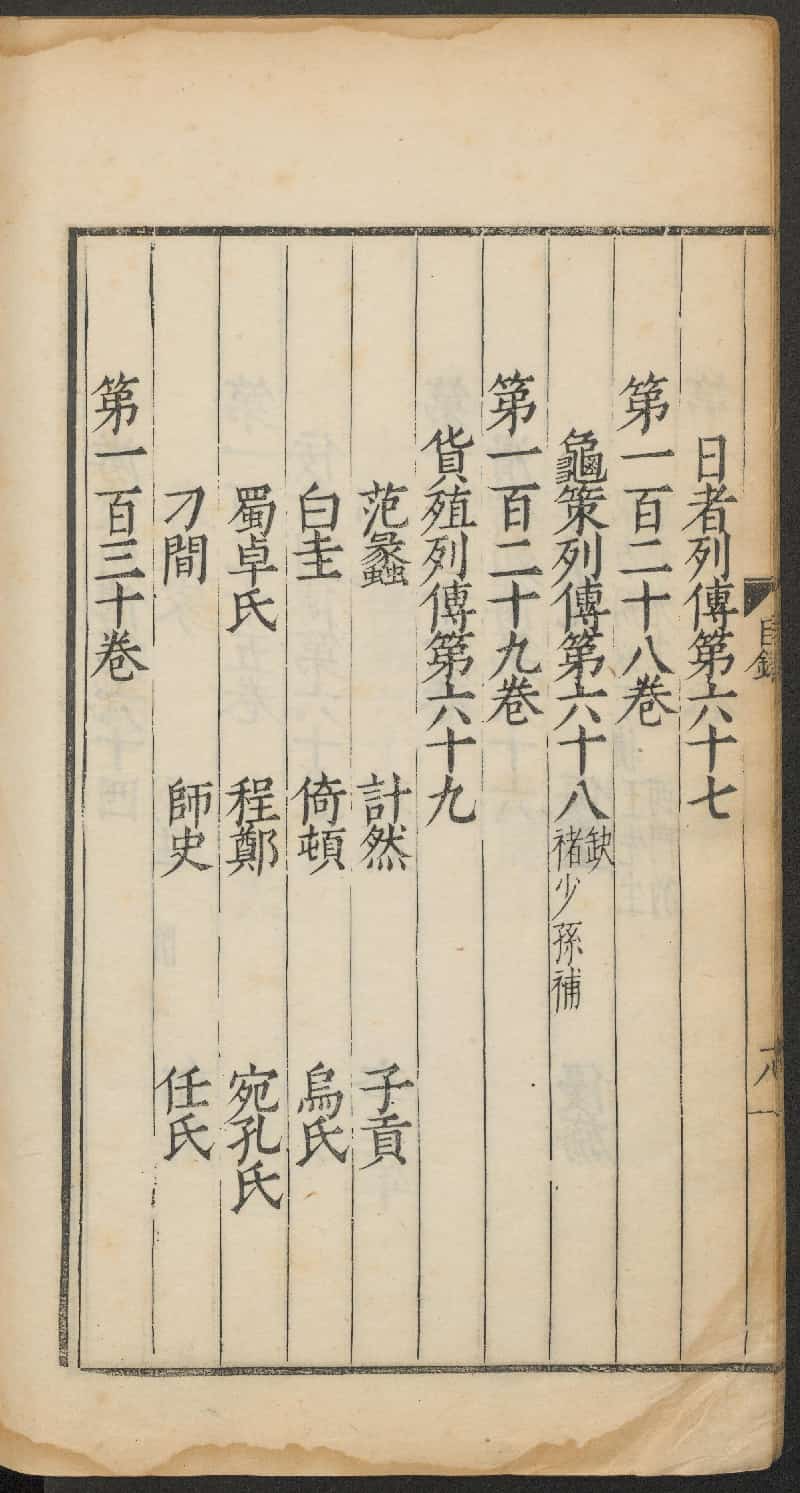 目錄
八
日者列傳第六十七
第一百二十八卷
龜策列傳第六十八 缺
褚少孫補
第一百二十九卷
貨殖列傳第六十九
范蠡 計然 子貢
白圭 倚頓 烏氏
蜀卓氏 程鄭 宛孔氏
刁間 師史 任氏
第一百三十卷